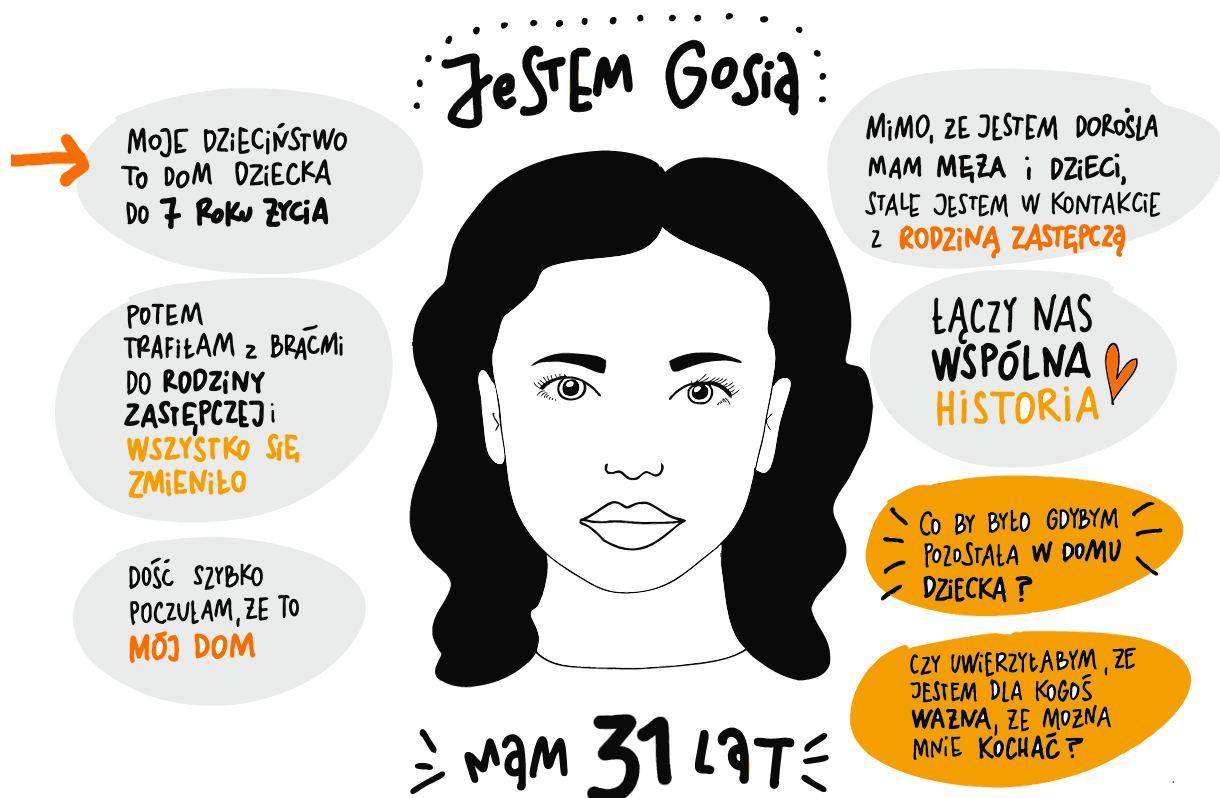 JESTEM GOSIĄ
MOJE DZIECIŃSTWO
TO DOM DZIECKA
DO 7 ROKU ŻYCIA
POTEM
TRAFIŁAM Z BRAĆMI
DO RODZINY
ZASTĘPCZEJ i
WSZYSTKO SIĘ
ZMIENIŁO
DOŚĆ SZYBKO
POCZUŁAM, ŻE TO
MÓJ DOM
MIMO, ŻE JESTEM DOROSŁA
MAM MĘŻA i DZIECI,
STALE JESTEM W KONTAKCIE
Z RODZINĄ ZASTĘPCZĄ
ŁĄCZY NAS
WSPÓLNA
HISTORIA
CO BY BYŁO GDYBYM
POZOSTAŁA W DOMU
DZIECKA?
CZY UWIERZYŁABYM, ŻE
JESTEM DLA KOGOŚ
WAŻNA, ŻE MOŻNA
MNIE KOCHAĆ?
MAM 31 LAT